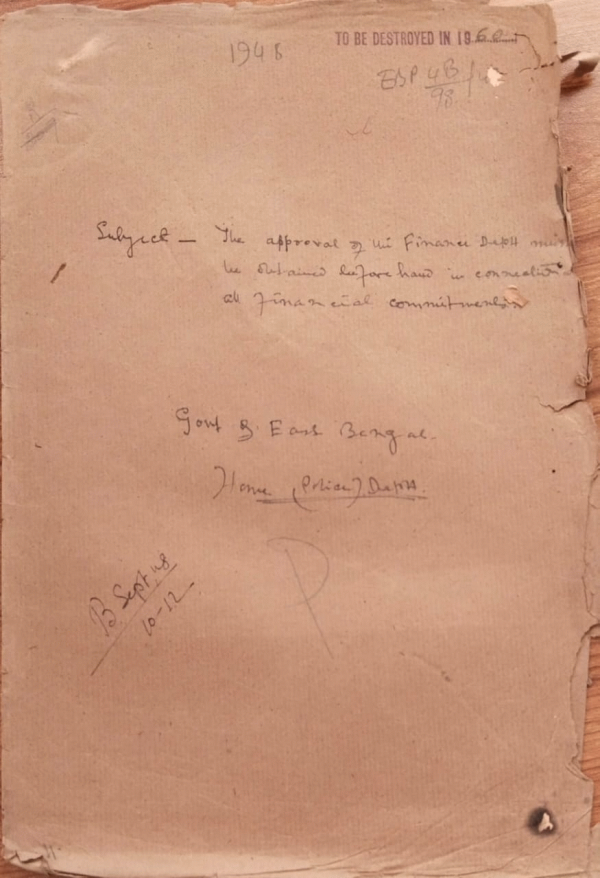 1948
TO BE DESTROYED IN 1960
4B/98
Subject — The approval of the Finance Deptt
be obtained before hand in
all Financial commitments
Govt of East Bengal.
Home (Police) Deptt.
B. Sept. 48
10-12
P